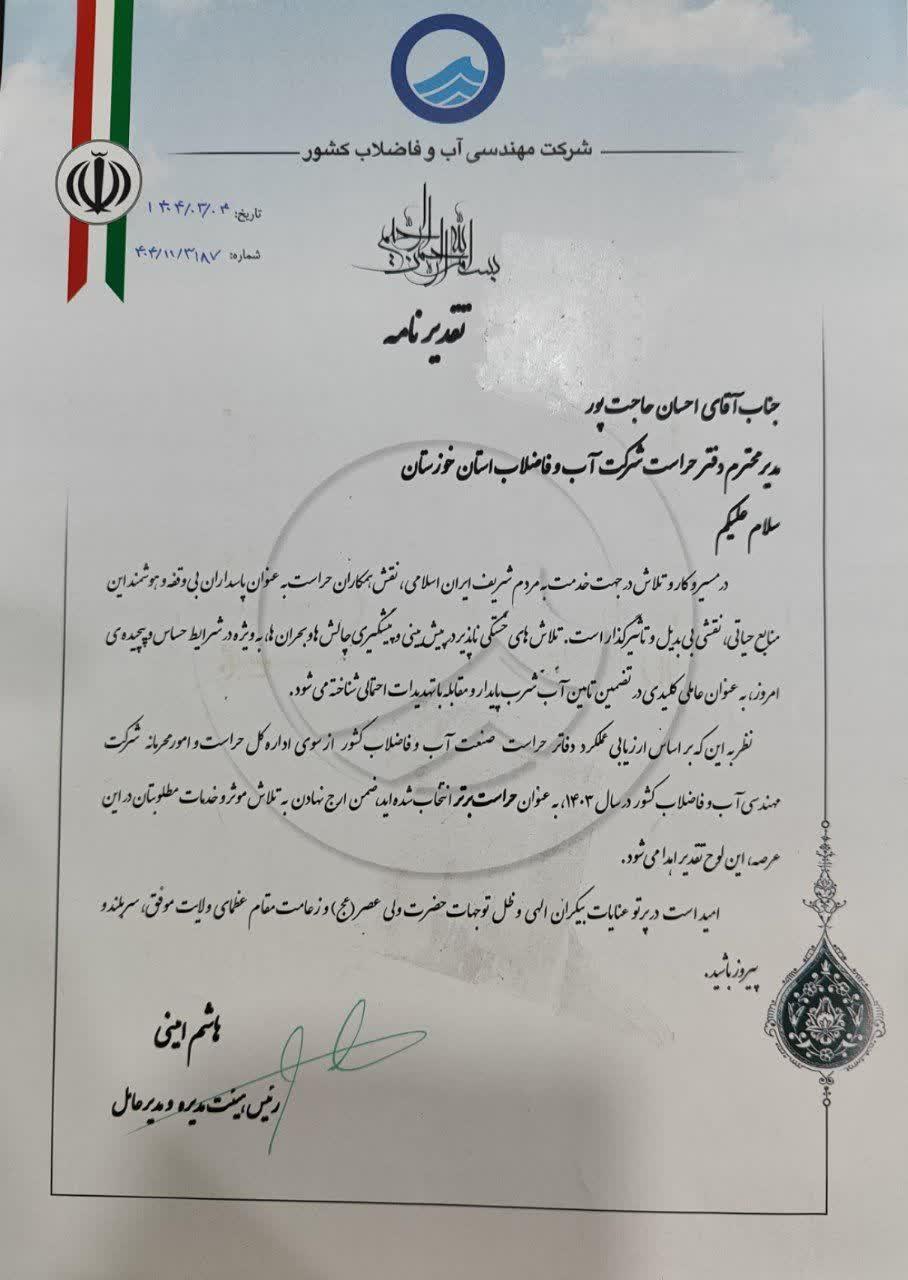 شرکت مهندسی آب و فاضلاب کشور
تاریخ: ۱۴۰۴/۰۳/۰۴
شماره: ۴۰۴/۱۱/۳۱۸۷
بسم الله الرحمن الرحیم
تقدیرنامه
جناب آقای احسان حاجت پور
مدیر محترم دفتر حراست شرکت آب و فاضلاب استان خوزستان
سلام علیکم
در مسیر و کار و تلاش در جهت خدمت به مردم شریف ایران اسلامی، نقش همکاران حراست به عنوان پاسداران بی وقفه و هوشمند این
منابع حیاتی، نقشی بی بدیل و تاثیرگذار است. تلاش های خستگی ناپذیر در پیش بینی و پیشگیری چالش ها و بحران ها، به ویژه در شرایط حساس و پیچیده ی
امروز، به عنوان عاملی کلیدی در تضمین تامین آب شرب پایدار و مقابله با تهدیدات احتمالی شناخته می شود.
نظر به این که بر اساس ارزیابی عملکرد دفاتر حراست صنعت آب و فاضلاب کشور از سوی اداره کل حراست و امور محرمانه شرکت
مهندسی آب و فاضلاب کشور در سال ۱۴۰۳، به عنوان حراست برتر انتخاب شده اید، ضمن ارج نهادن به تلاش موثر و خدمات مطلوبتان در این
عرصه، این لوح تقدیر اهدا می شود.
امید است در پرتو عنایات بیکران الهی و ظل توجهات حضرت ولی عصر (عج) و زعامت مقام عظمای ولایت موفق، سربلند و
پیروز باشید.
هاشم امینی
رئیس هیئت مدیره و مدیرعامل